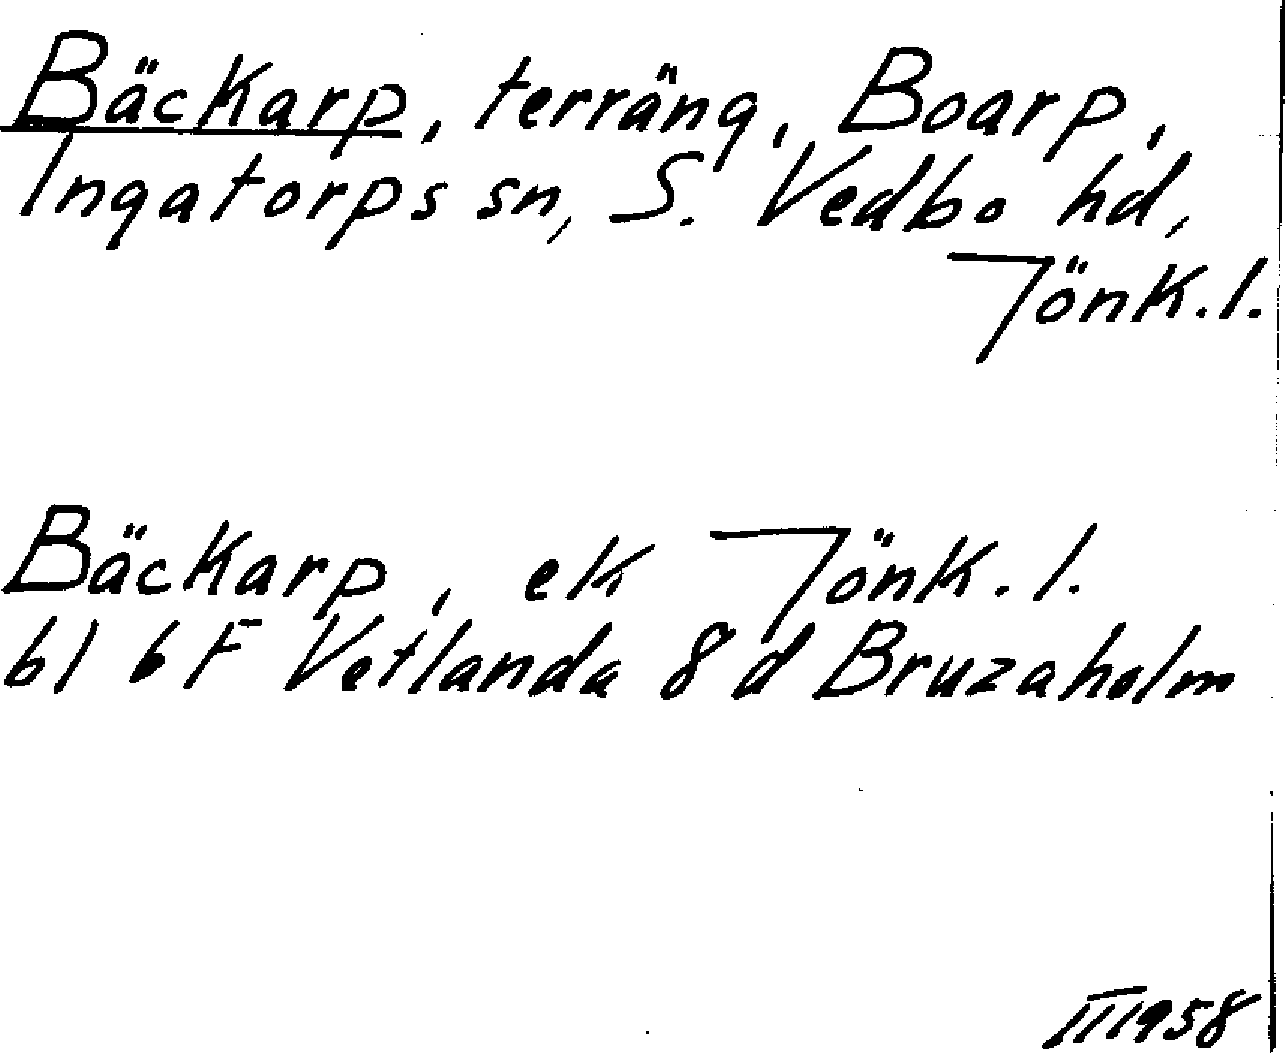 Bäckarp, terräng, Boarp,
Ingatorps sn, S. Vedbo hd,
Jönk. l.
Bäckarp, ek Jönk. l.
bl 6 F Vetlanda 8 d Bruzaholm
III 1958